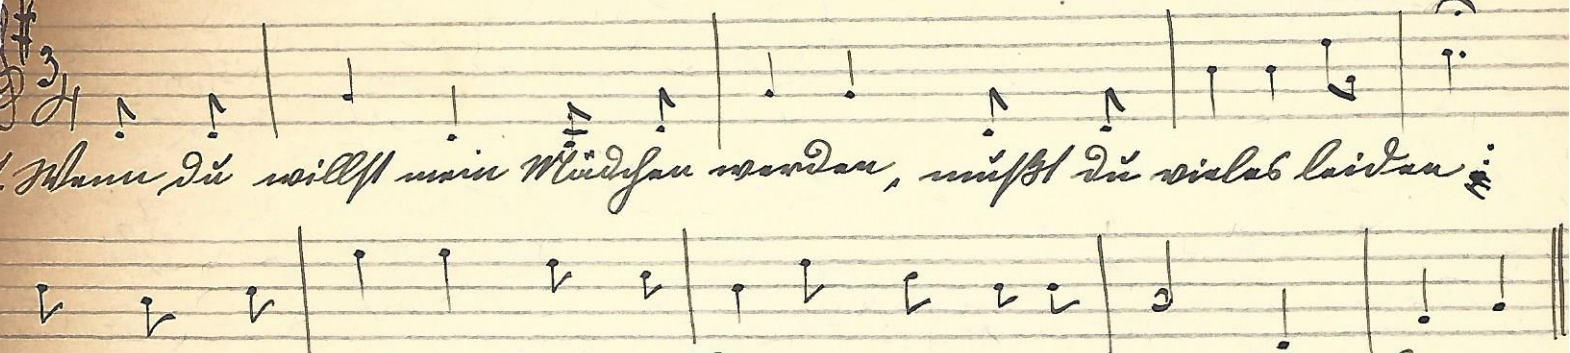 Wenn du willst mein Mädchen werden, mußt du vieles leiden;